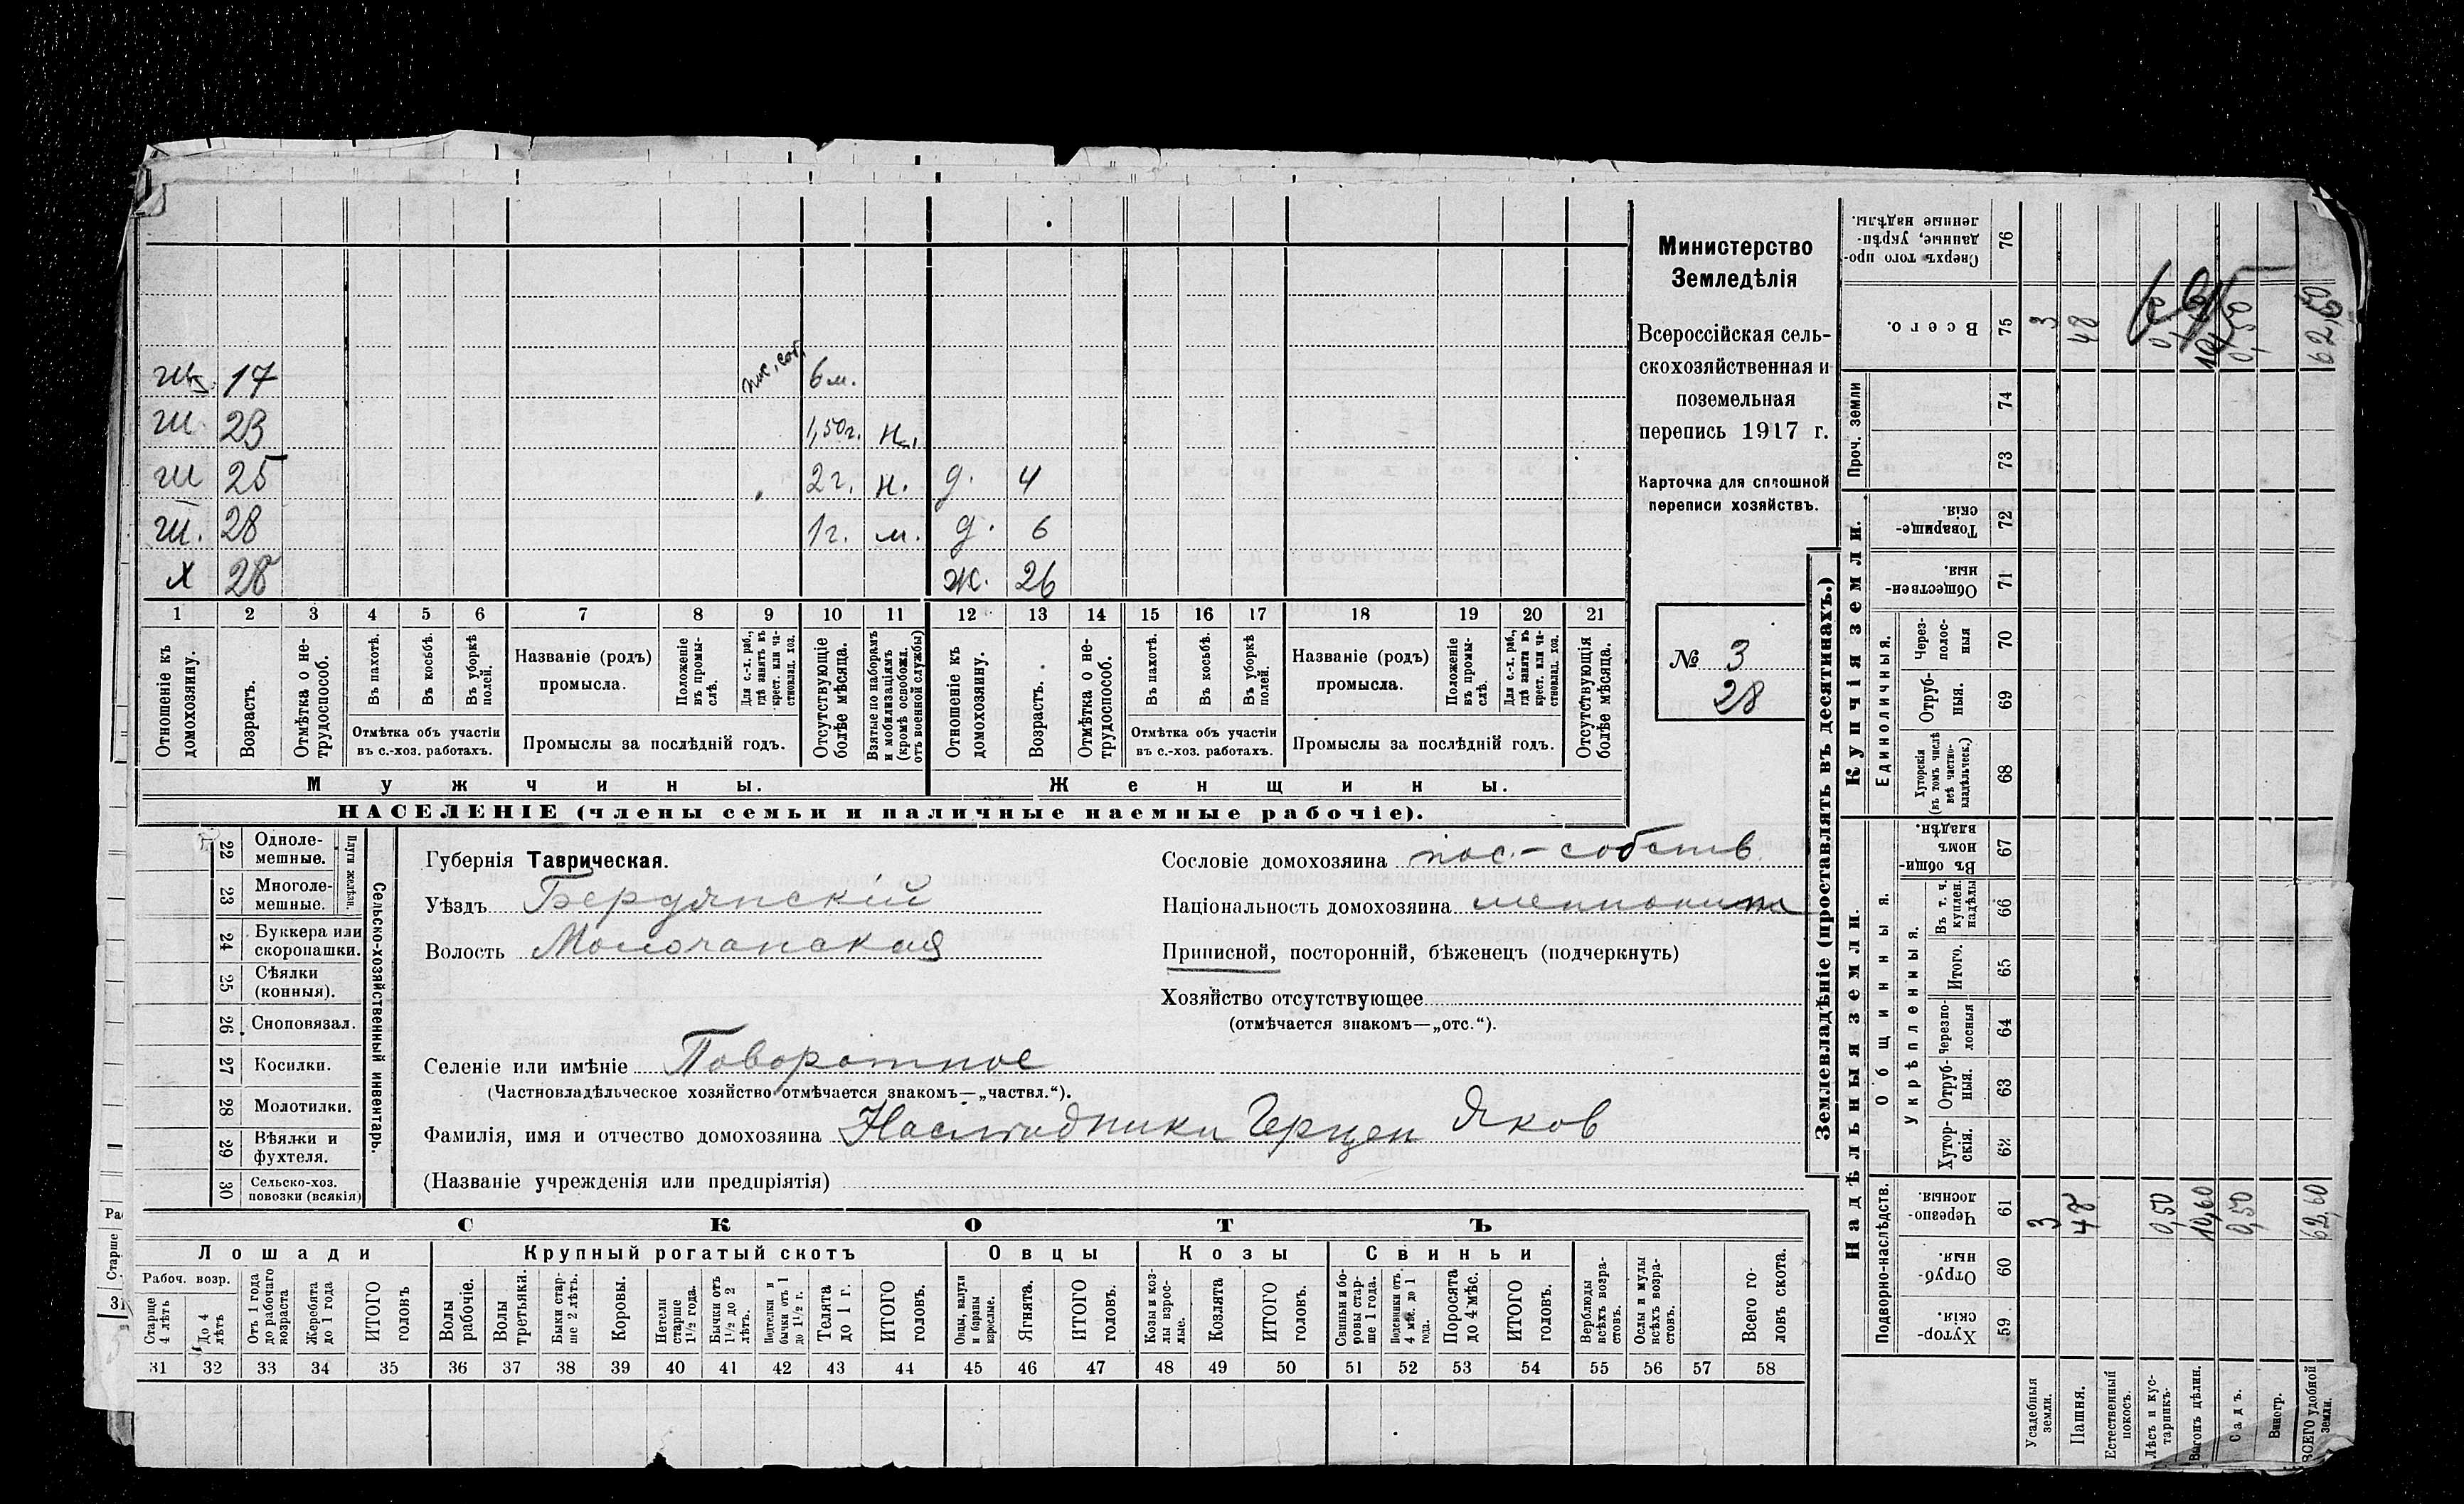 ш. 17 пос. соб. 6 м.
ш. 23 1,50 г. н.
ш 25 2 г. н. д. 4
ш. 28 1 г. м. д. 6
х 28 ж. 26
1 2 3 4 5 6 7 8 9 10 11 12 13 14 15 16 17 18 19 20 21
Отношеніе къ домохозяину.
Возрастъ.
Отмѣтка о нетрудоспособ.
Въ пахотѣ.
Въ косьбѣ.
Въ уборкѣ полей.
Отмѣтка объ участіи
въ с.-хоз. работахъ.
Названіе (родъ)
промысла.
Положеніе въ промыслѣ.
Для с.-х. раб., гдѣ занятъ въ крест. или частновлад. хоз.
Промыслы за послѣдній годъ.
Отсутствующіе болѣе мѣсяца.
Взятые по наборамъ и мобилизаціямъ (кромѣ освобожд. отъ военной службы)
Отношеніе къ домохозяину.
Возрастъ.
Отмѣтка о нетрудоспособ.
Въ пахотѣ.
Въ косьбѣ.
Въ уборкѣ полей.
Отмѣтка объ участіи
въ с.-хоз. работахъ.
Названіе (родъ)
промысла.
Положеніе въ промыслѣ.
Для с.-х. раб., гдѣ занята въ крест. или частновлад. хоз.
Промыслы за послѣдній годъ.
Отсутствующія болѣе мѣсяца.
Мужчины.
Женщины.
НАСЕЛЕНІЕ (члены семьи и наличные наемные рабочіе).
Министерство
Земледѣлія
Всероссійская сель-
скохозяйственная и
поземельная
перепись 1917 г.
Карточка для сплошной
переписи хозяйствъ.
№ 3
28
Сельско-хозяйственный инвентарь.
Плуги желѣзн.
22 Одноле-
мешные.
23 Многоле-
мешные.
24 Буккера или
скоропашки.
25 Сѣялки
(конныя).
26 Сноповязал.
27 Косилки.
28 Молотилки.
29 Вѣялки и
фухтеля.
30 Сельско-хоз.
повозки (всякія)
Губернія Таврическая.
Уѣздъ Бердянскій
Волость Молочанская
Сословіе домохозяина пос.-собств.
Національность домохозяина меннониты
Приписной, посторонній, бѣженецъ (подчеркнуть)
Хозяйство отсутствующее
(отмѣчается знакомъ—„отс.“).
Селеніе или имѣніе Поворотное
(Частновладѣльческое хозяйство отмѣчается знакомъ—„частвл.“).
Фамилія, имя и отчество домохозяина Наслѣдники Герцен Яков
(Названіе учрежденія или предпріятія)
СКОТЪ
Лошади Крупный рогатый скотъ Овцы Козы Свиньи
Рабоч. возр.
Старше 4 лѣтъ
До 4 лѣтъ
Отъ 1 года до рабочаго возраста
Жеребята до 1 года
ИТОГО головъ
Волы рабочіе.
Волы третьяки.
Быки старше 2 лѣтъ.
Коровы.
Нетели старше 1½ года.
Бычки отъ 1½ до 2 лѣтъ.
Подтелки и бычки отъ 1 до 1½ г.
Телята до 1 г.
ИТОГО головъ.
Овцы, валухи и бараны взрослые.
Ягнята.
ИТОГО головъ.
Козы и козлы взрослые.
Козлята
ИТОГО головъ.
Свиньи и боровы старше 1 года.
Подсвинки отъ 4 мѣс. до 1 года.
Поросята до 4 мѣс.
ИТОГО головъ.
Верблюды всѣхъ возрастовъ.
Ослы и мулы всѣхъ возрастовъ.
Всего головъ скота.
31 32 33 34 35 36 37 38 39 40 41 42 43 44 45 46 47 48 49 50 51 52 53 54 55 56 57 58
Землевладѣніе (проставлять въ десятинахъ.)
Сверхъ того проданные, укрѣпленные надѣлы. 76
Всего. 75 3 48 0,50 10,60 0,50 62,60
Проч. земли 74
73
Купчія земли.
Товарищескія. 72
Общественныя. 71
Единоличныя.
Черезполосныя 70
Отрубныя. 69
Хуторскія (въ томъ числѣ всѣ частновладѣльческ.) 68
Надѣльныя земли.
Общинныя.
Въ общинномъ владѣн. 67
Укрѣпленныя.
Въ т. ч. куплен. надѣлы 66
Итого. 65
Черезполосныя 64
Отрубныя. 63
Хуторскія. 62
Подворно-наслѣдств.
Черезполосныя. 61 3 48 0,50 10,60 0,50 62,60
Отрубныя. 60
Хуторскія. 59
Усадебныя земли.
Пашня.
Естественный покосъ.
Лѣсъ и кустарникъ.
Выгонъ цѣлин.
Садъ.
Виногр.
ВСЕГО удобной земли.